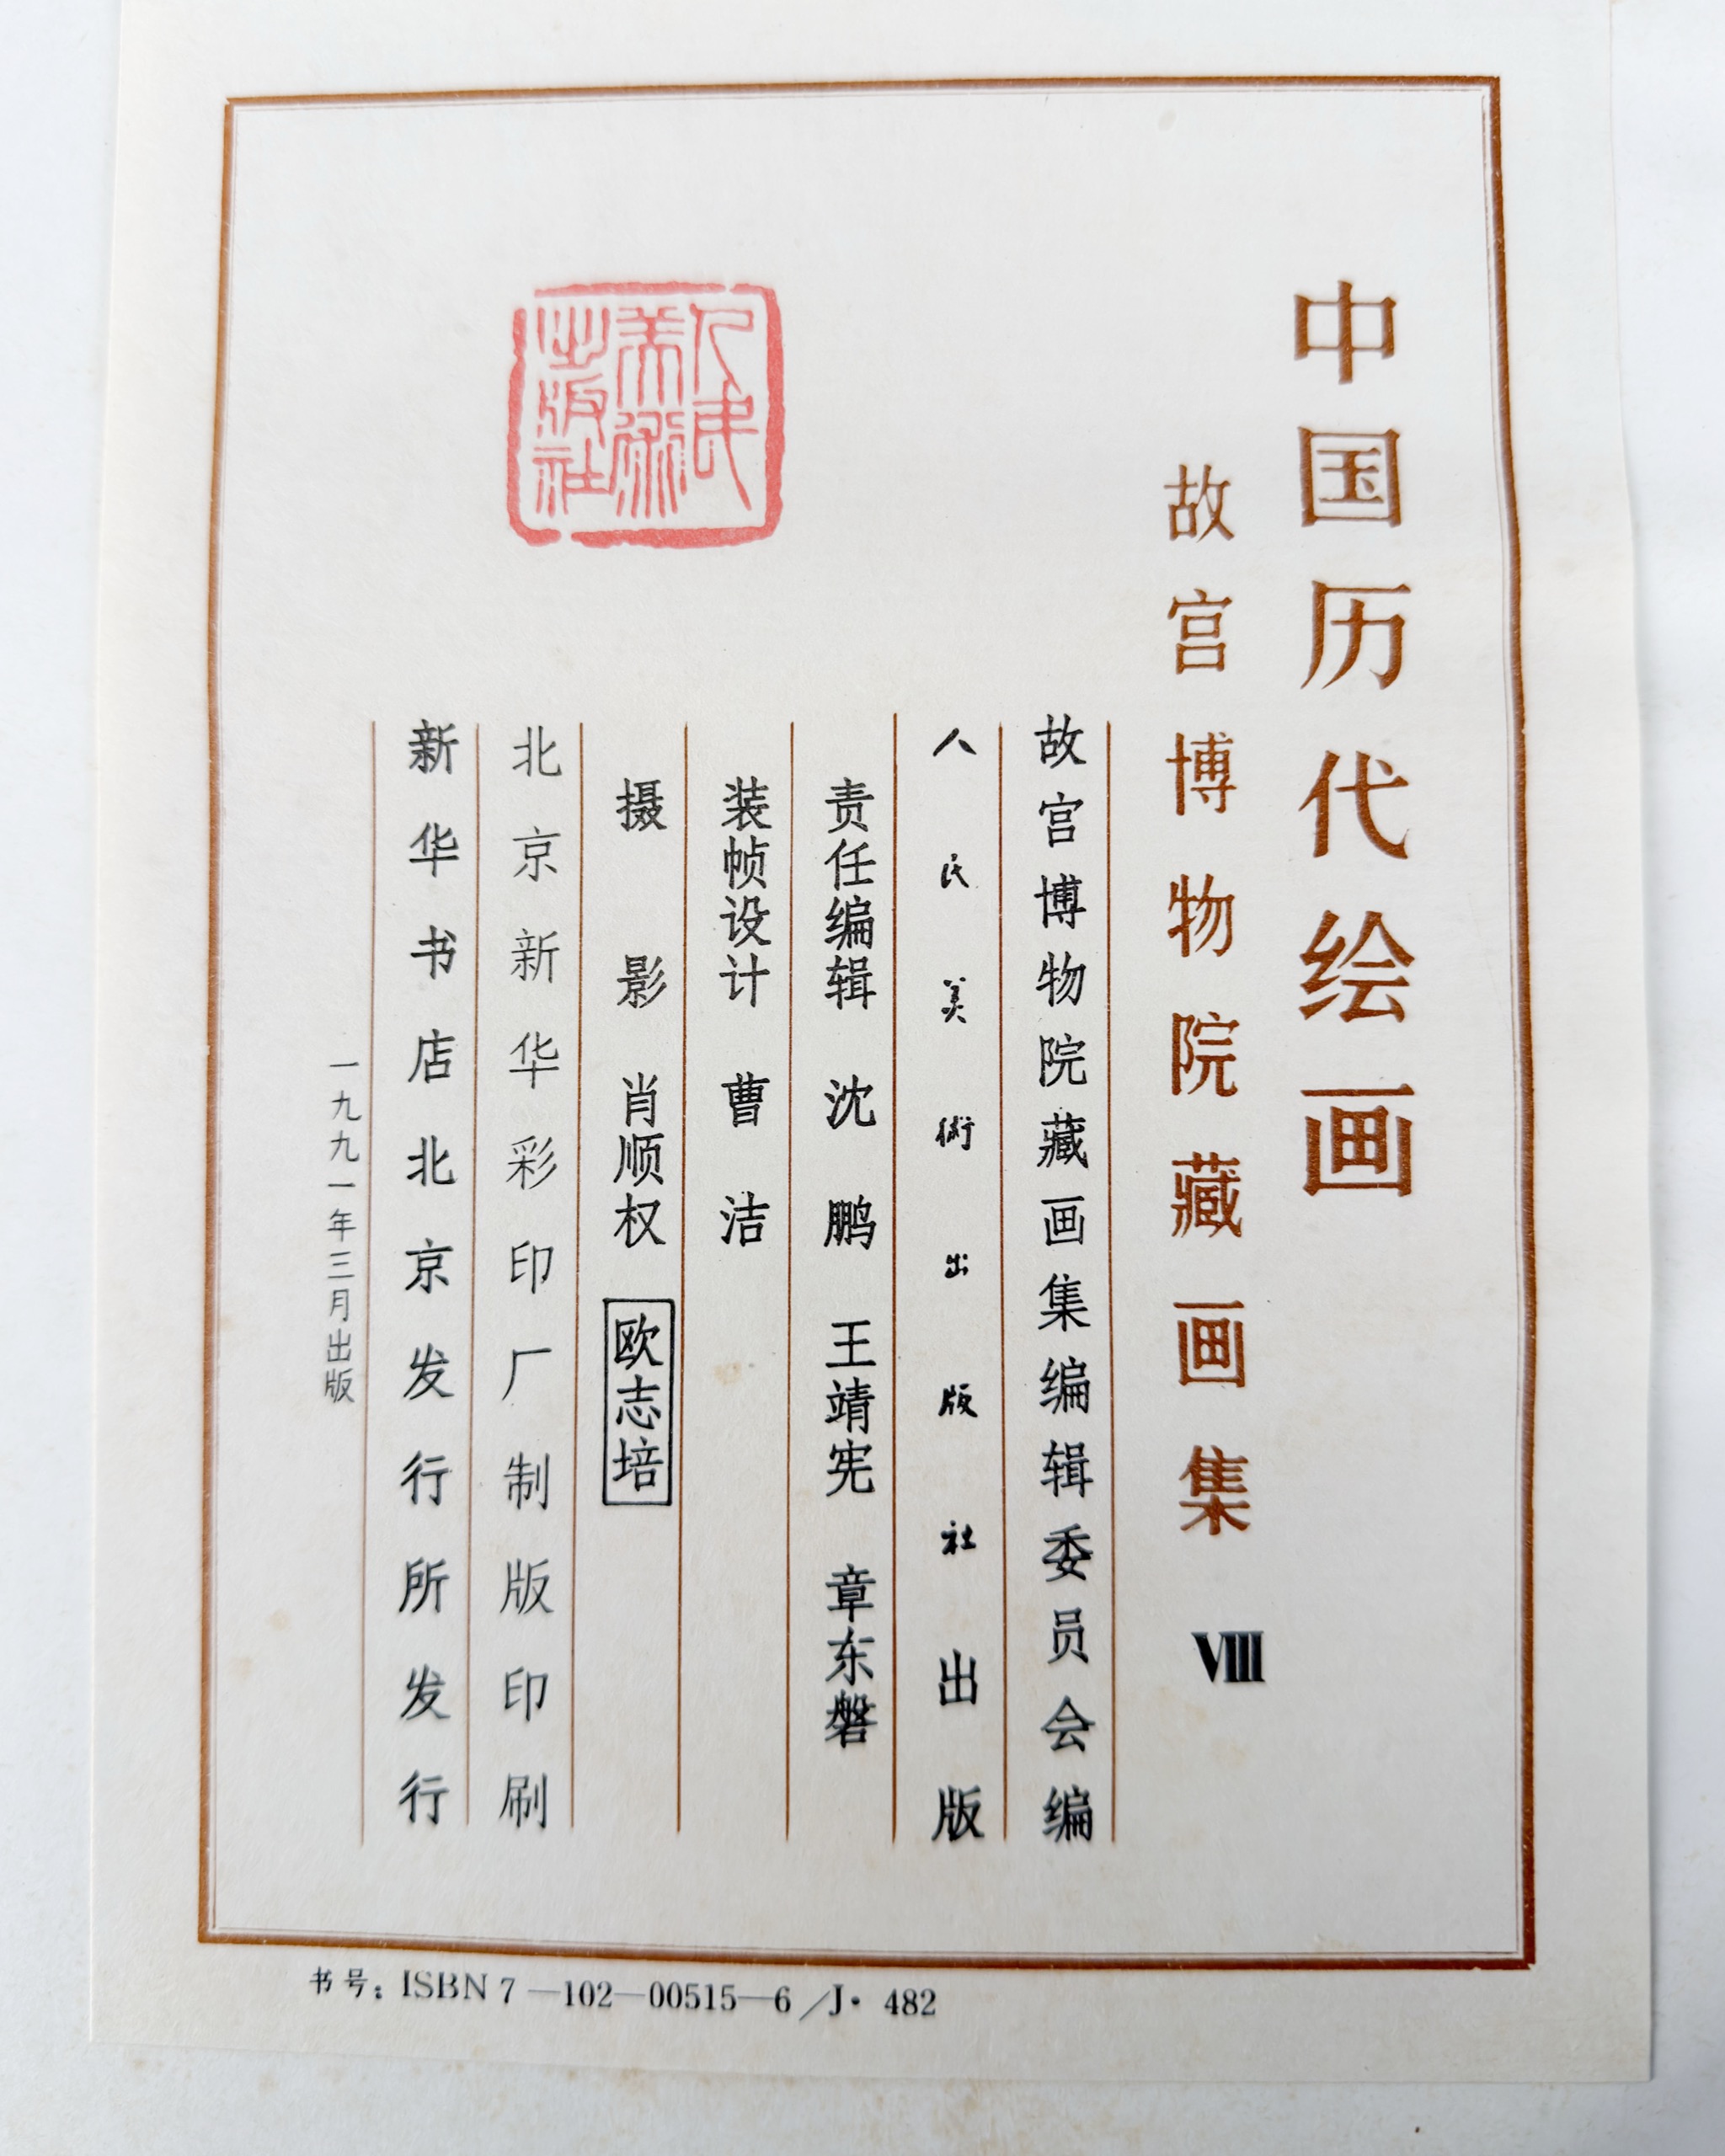 中国历代绘画
故宫博物院藏画集 Ⅷ
故宫博物院藏画集编辑委员会编
人民美術出版社出版
责任编辑 沈鹏 王靖宪 章东磐
装帧设计 曹洁
摄影 肖顺权 欧志培
北京新华彩印厂制版印刷
新华书店北京发行所发行
一九九一年三月出版
人民
美術
出版社
书号：ISBN 7—102—00515—6／J·482